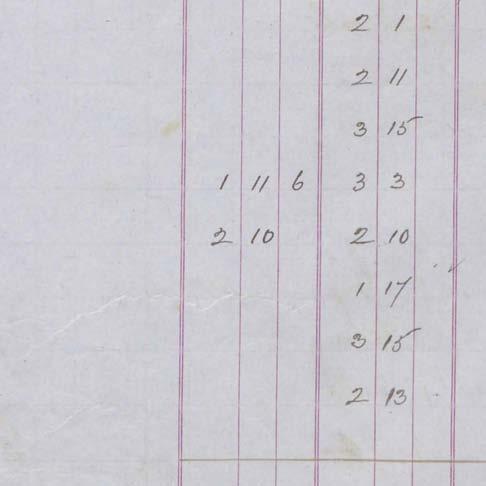 2 1
2 11
3 15
1 11 6 3 3
2 10 2 10
1 17
3 15
2 13